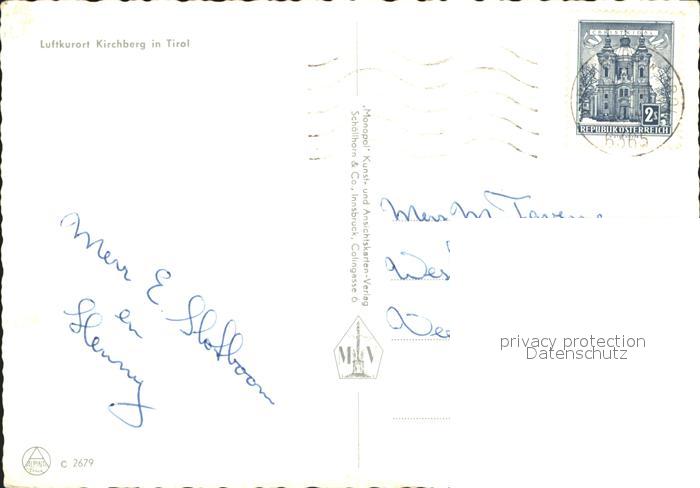 Luftkurort Kirchberg in Tirol
CHRISTKINDL
2S
REPUBLIK ÖSTERREICH
6365
„Monopol" Kunst- und Ansichtskarten-Verlag
Schöllhorn & Co., Innsbruck, Colingasse 6
M V
Mevr
Wes
privacy protection
Datenschutz
Mevr E. Slotboom
en
Henny
ALPINA
C 2679